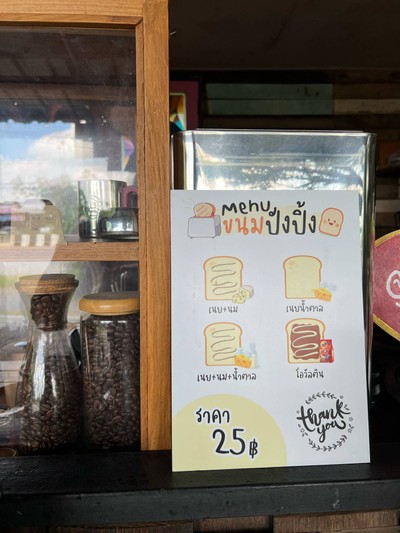 Menu
ขนมปังปิ้ง
เนย+นม
เนยน้ำตาล
เนย+นม+น้ำตาล
โอวัลติน
ราคา
25฿
thank
you